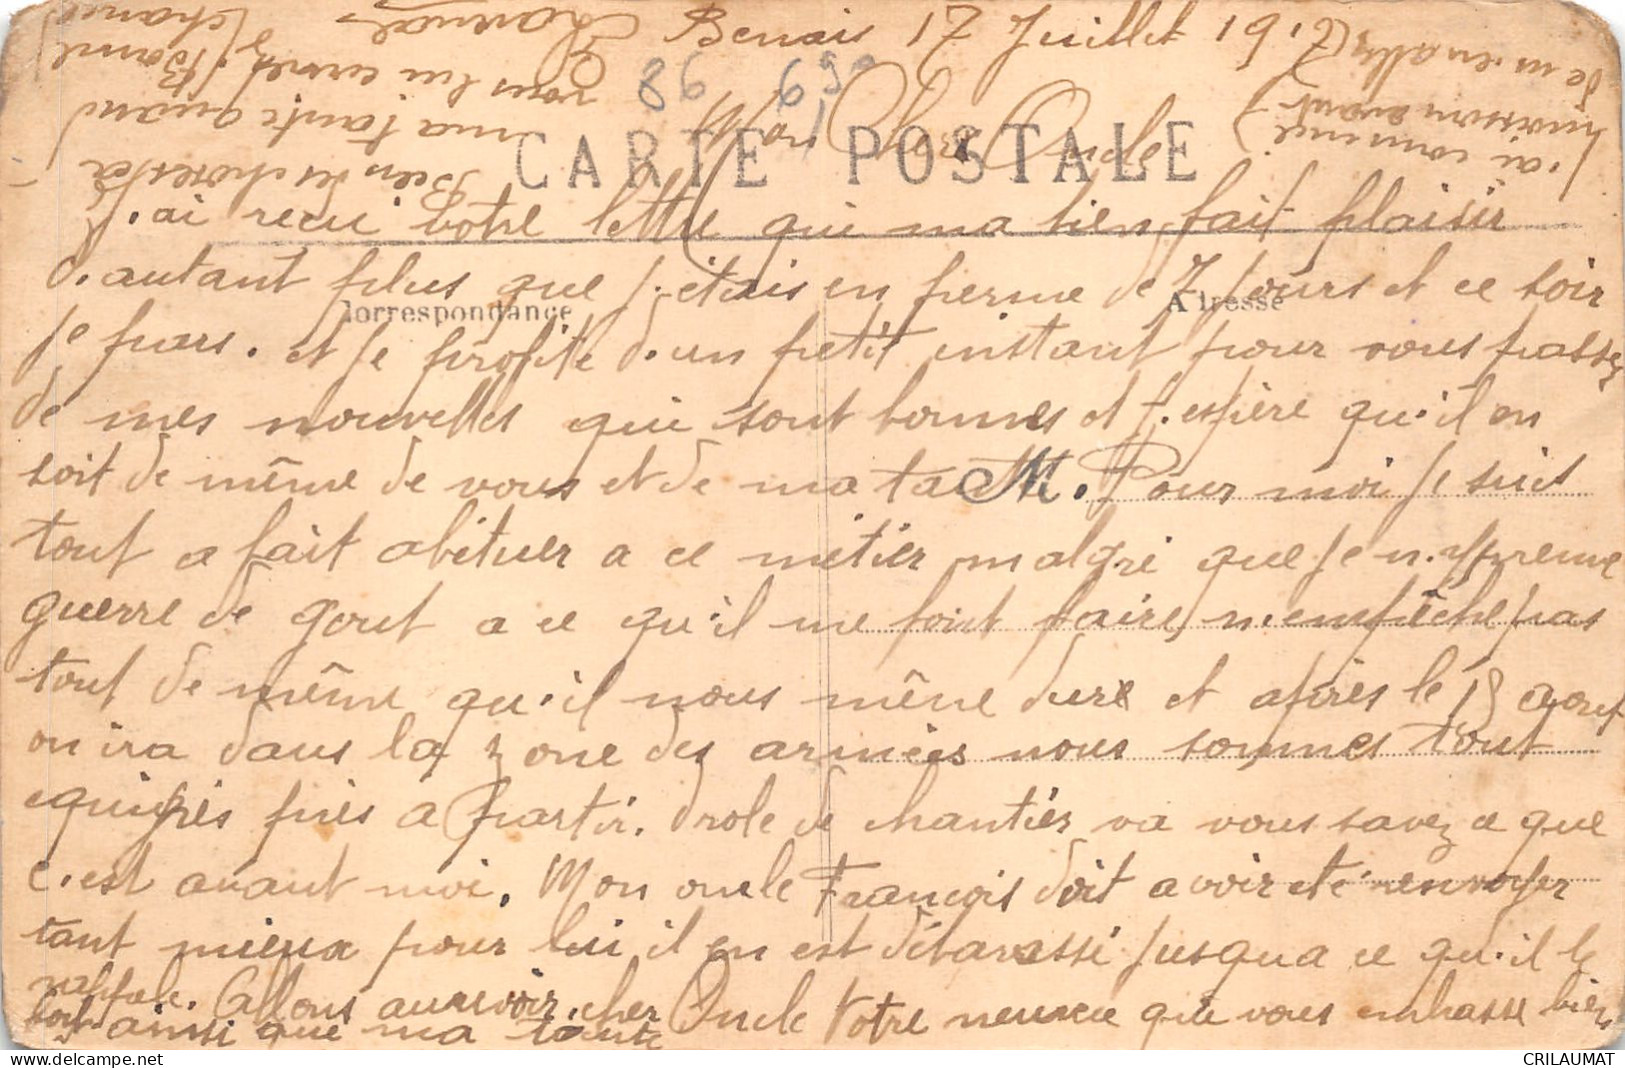 Benais 17 Juillet 1917
86 6
CARTE POSTALE
Mon Cher Oncle
J.ai recu votre lettre qui ma bien fait plaisir
d.autant plus que j.étais en perme de 7 jours et ce soir
Correspondance
Adresse
je pars. et je profite d.un petit instant pour vous passer
de mes nouvelles qui sont bonnes et j.espère qu'il en
soit de même de vous et de ma tante. Pour moi je suis
tout a fait abituer a ce métier malgré que je n.
guerre de gout a ce qu'il me font faire, n.empêche pas
tout de même qu'il nous même dure et après le 15 aout
on ira dans la zone des armées nous sommes tout
équippés près a partir. drole de chantier va vous savez a que
c.est avant moi. Mon oncle François doit avoir eté renvoyer
tant mieux pour lui il en est débarassé jusqua ce qu'il le
rappele. Allons aurevoir cher Oncle Votre neuveu qui vous embrasse bien
fort ainsi que ma tante
Bien des choses a
ma tante quand
vous lui ecrirez Bonne
chance
j.ai commencé
de m.en aller